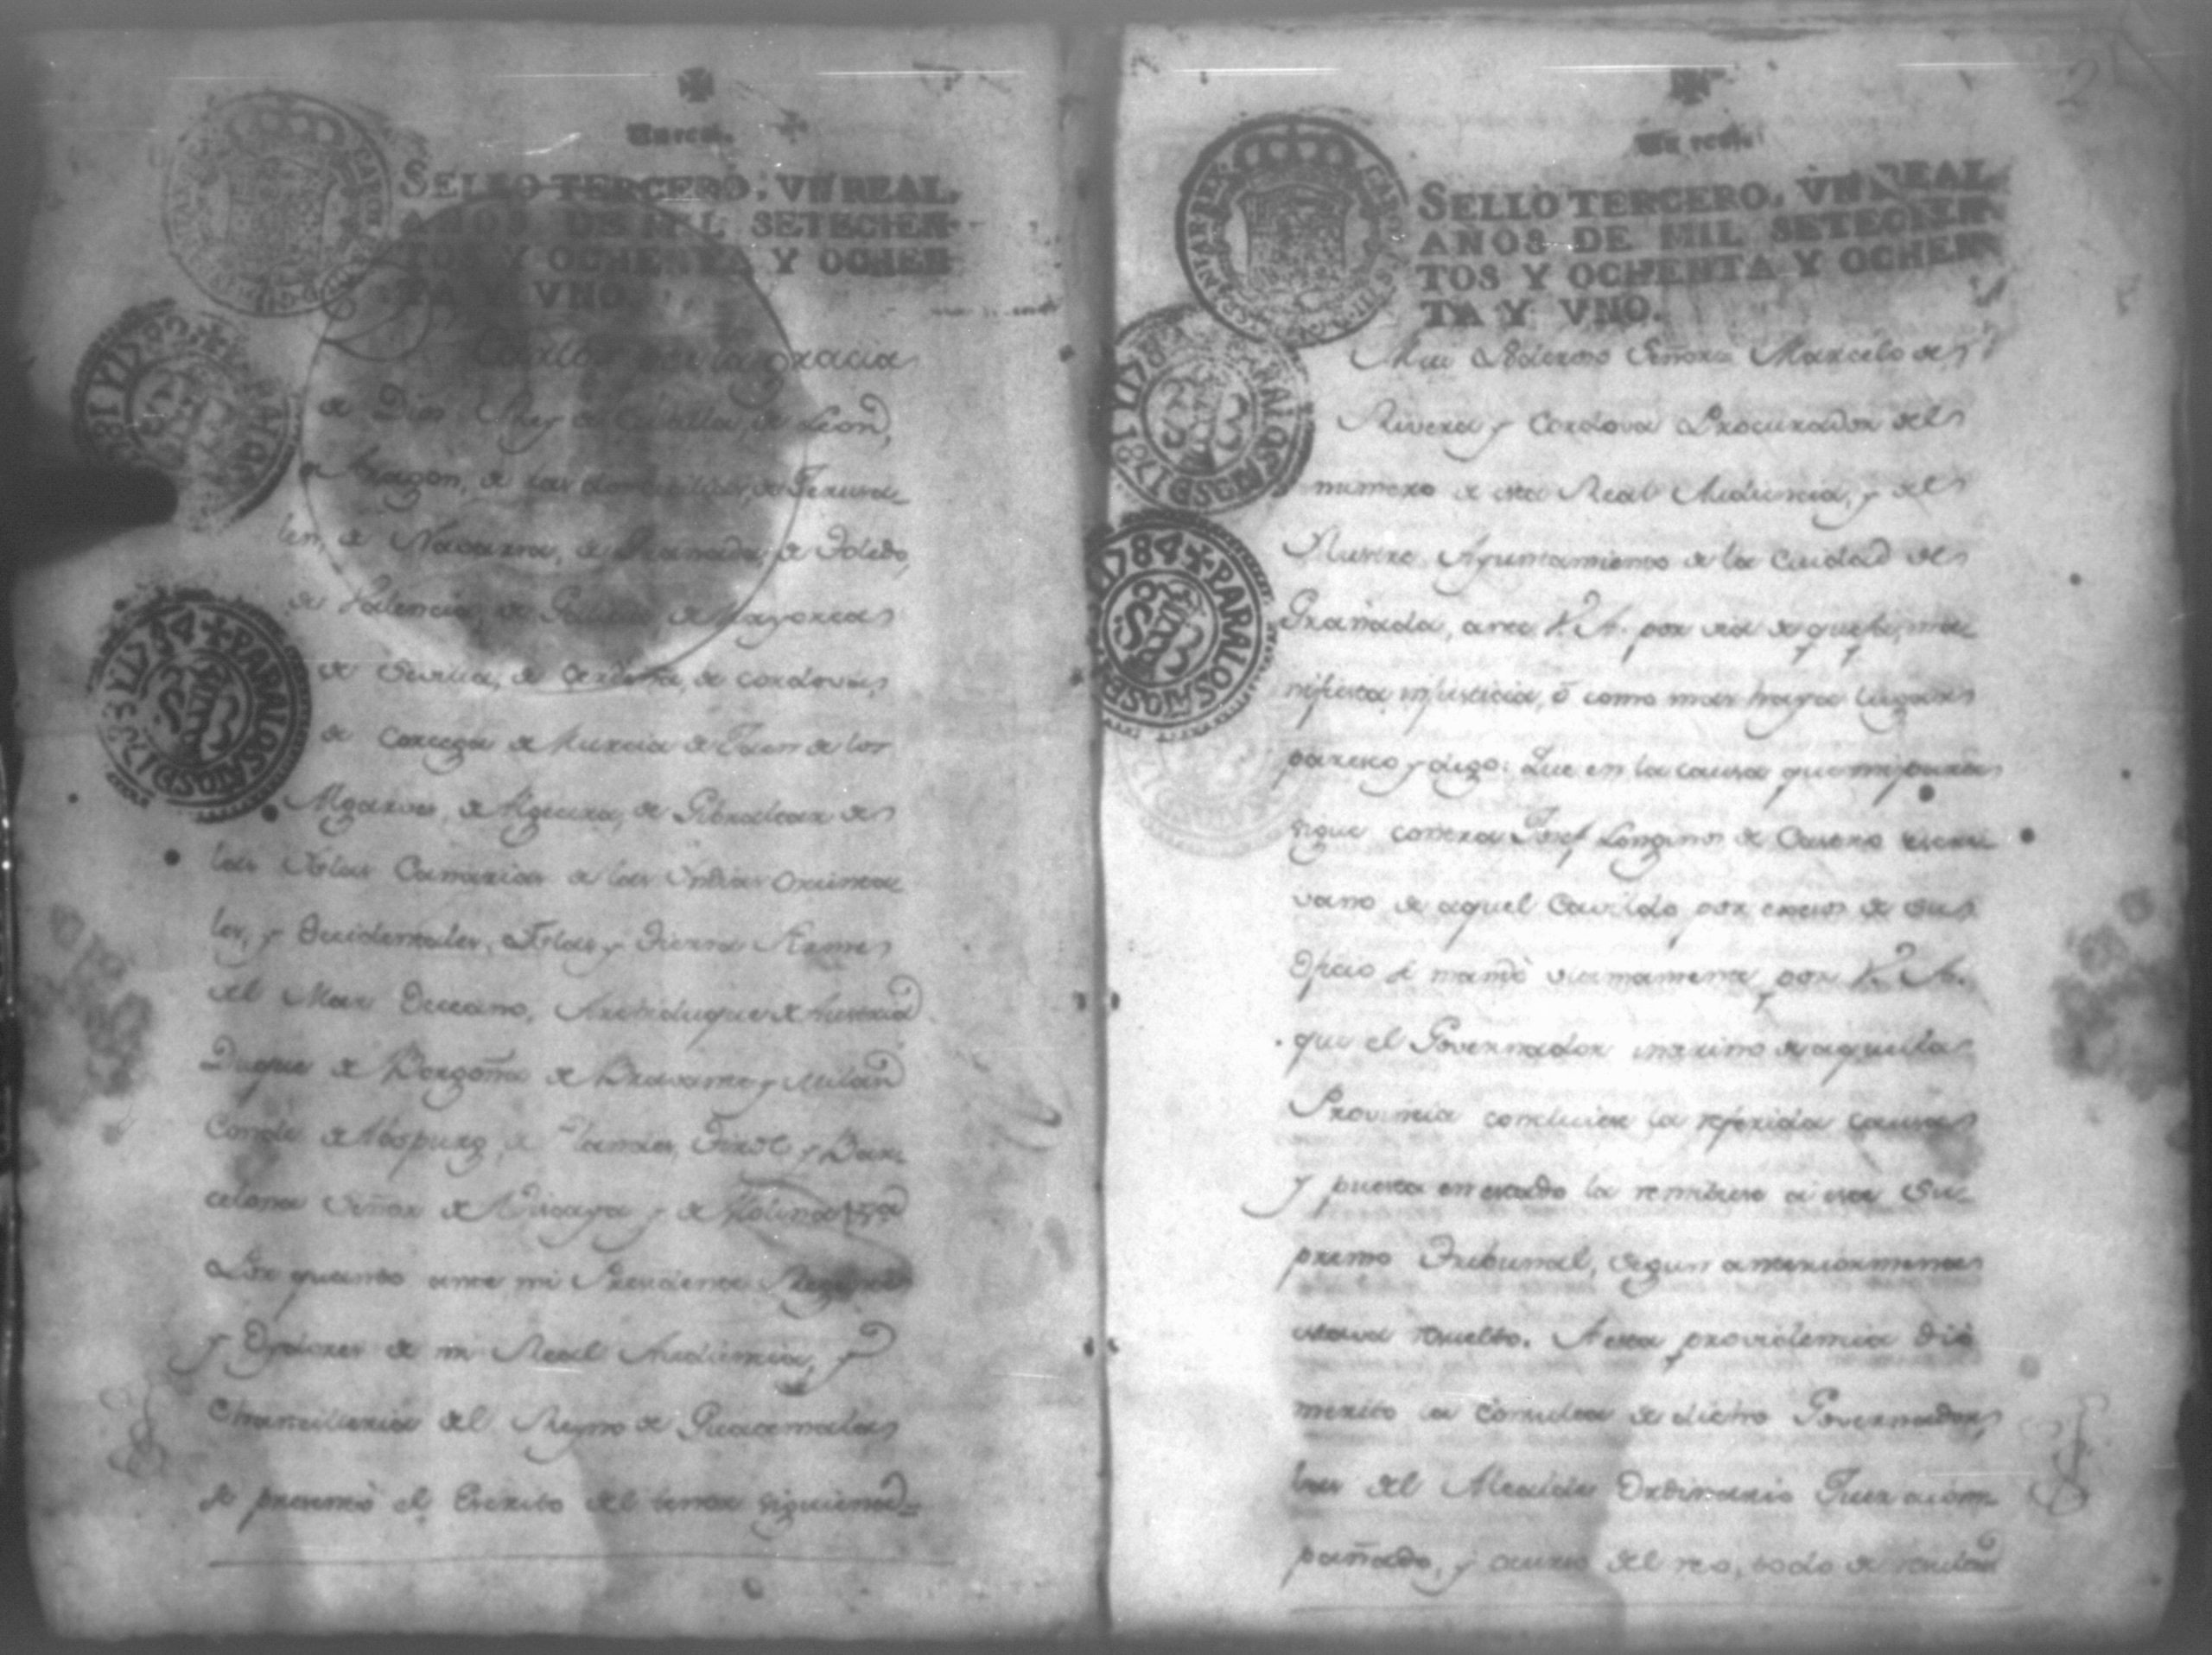 Un real.
SELLO TERCERO, VN REAL,
AÑOS DE MIL SETECIEN-
TOS Y OCHENTA Y OCHEN-
TA Y VNO.
Carlos por la gracia
de Dios Rey de Castilla, de Leon,
de Aragon, de las dos Sicilias, de Jerusa-
len, de Navarra, de Granada, de Toledo,
de Valencia, de Galicia de Mayorca
de Sevilla, de Cerdeña, de Cordova,
de Corcega de Murcia de Jaen de los
Algarves, de Algecira, de Gibraltar de
las Islas Canarias de las Yndias Orienta
les, y Occidentales, Yslas y Tierra Firme
del Mar Occeano, Archiduque de Austria
Duque de Borgoña de Bravante y Milan
Conde de Abspurg, de Flandes, Tirol y Bar-
celona Señor de Viscaya y de Molina
Por quanto ante mi Presidente Regente
y Oydores de mi Real Audiencia, y
Chancilleria del Reyno de Guatemala
se presentó el Escrito del tenor siguiente
1784 PARA LOS AÑOS DE 1783 Y
Un real.
SELLO TERCERO, VN REAL,
AÑOS DE MIL SETECIEN
TOS Y OCHENTA Y OCHEN
TA Y VNO.
Mui Poderoso Señor: Marcelo de
Rivera y Cordova Procurador del
numero de esta Real Audiencia, y del
Ilustre Ayuntamiento de la Ciudad de
Granada, ante V. A. por via de quefa, ma
nifiesta injusticia, ó como mas haya lugar
paresco y digo: Que en la causa que mi parte
sigue contra Josef Longinos de Castro escri
vano de aquel Cavildo por exesos de su
Oficio se mandó ultimamente por V. A.
que el Governador interino de aquella
Provincia concluiese la referida causa
y puesta en estado la remitiese a este Su-
premo Tribunal, segun anteriormente
estava resuelto. A esta providencia dió
merito la consulta de dicho Governador,
las del Alcalde Ordinario Juez acom-
pañado, y del reo, todo de
1784 PARA LOS AÑOS DE